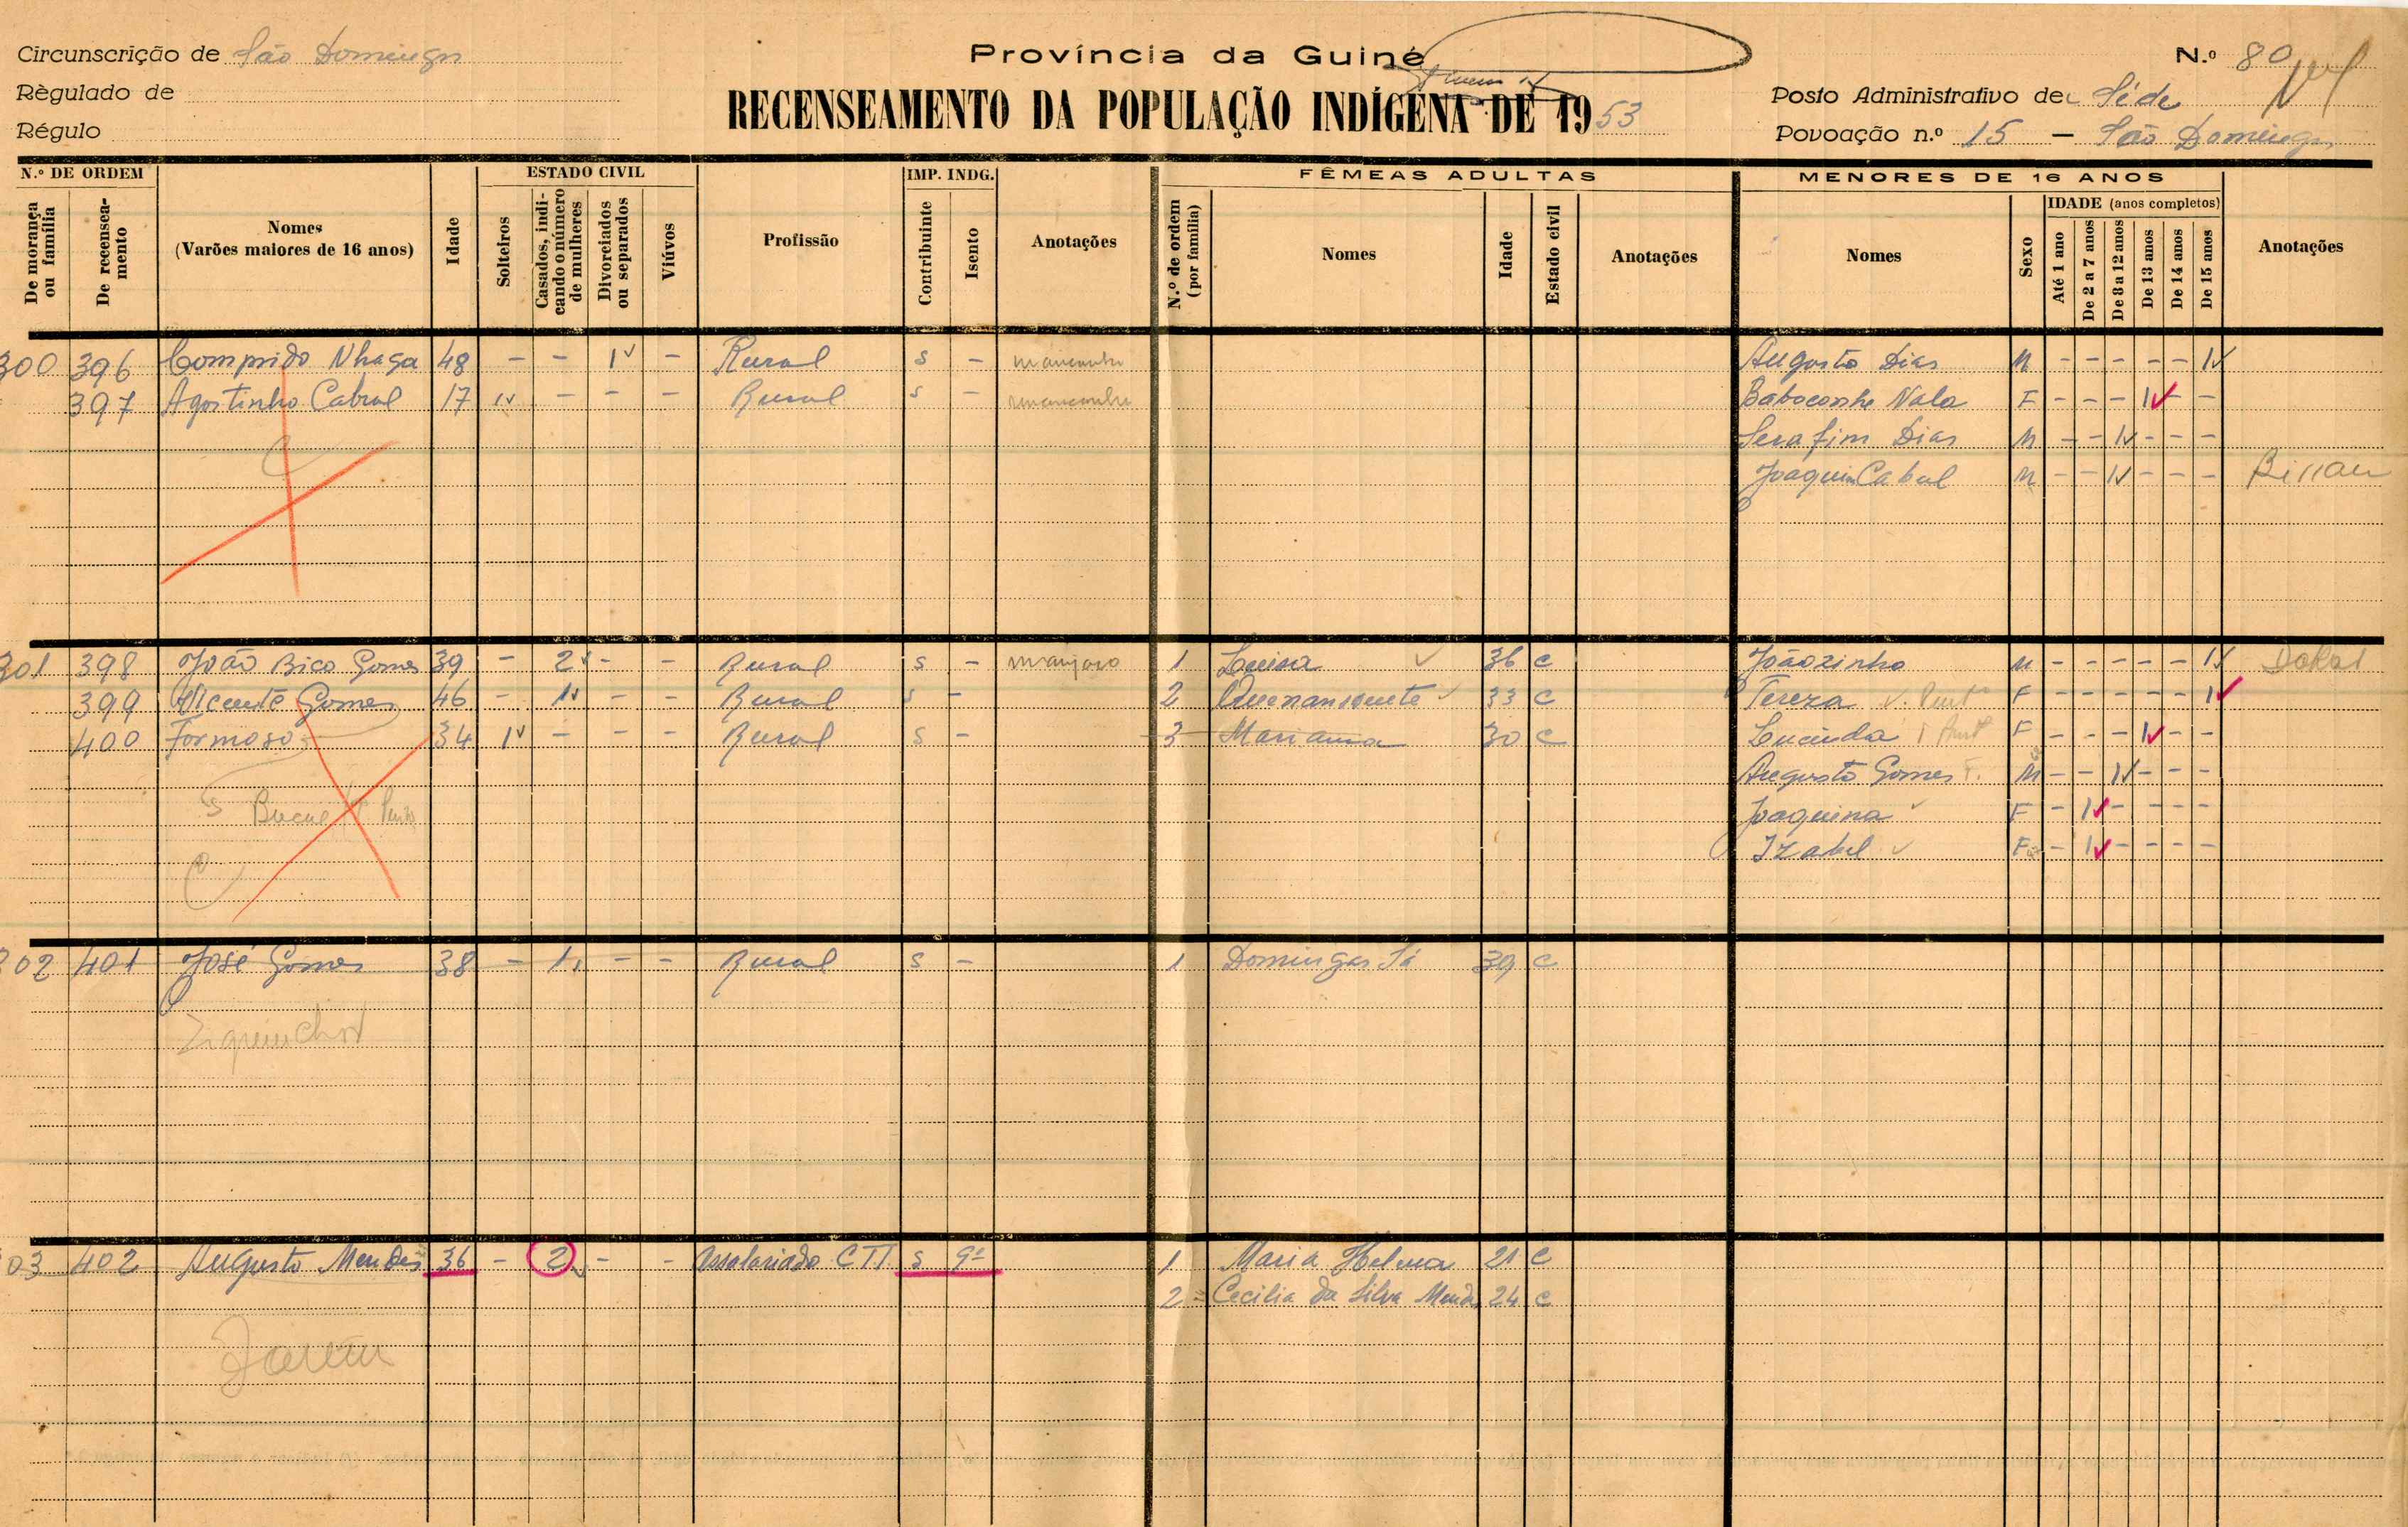 Província da Guiné
RECENSEAMENTO DA POPULAÇÃO INDÍGENA DE 1953
Circunscrição de São Domingos
Règulado de
Régulo
N.º 80
Posto Administrativo de Séde
Povoação n.º 15 — São Domingos
N.º DE ORDEM
De morança ou família
De reensea-mento
Nomes
(Varões maiores de 16 anos)
Idade
ESTADO CIVIL
Solteiros
Casados, indi-cando o número de mulheres
Divorciados ou separados
Viúvos
Profissão
IMP. INDG.
Contribuinte
Isento
Anotações
FÊMEAS ADULTAS
N.º de ordem (por família)
Nomes
Idade
Estado civil
Anotações
MENORES DE 16 ANOS
Nomes
Sexo
IDADE (anos completos)
Até 1 ano
De 2 a 7 anos
De 8 a 12 anos
De 13 anos
De 14 anos
De 15 anos
Anotações
300 396 Comprido Nhaga 48 - - 1 - Rural s - Augusto Dias M - - - - - 1
397 Agostinho Cabral 17 1 - - - Rural s - Nala F - - - 1 - -
Serafim Dias M - - 1 - - -
Joaquim Cabral M - - 1 - - - Bissau
301 398 João Bico Gomes 39 - 2 - - Rural s - manjaco 1 Luisa 36 c Joãozinho M - - - - - 1 Dakar
399 Vicente Gomes 46 - 1 - - Rural s - 2 33 c Tereza F - - - - - 1
400 Formoso 34 1 - - - Rural s - 3 Mariama 30 c Lucinda F - - - 1 - -
Augusto Gomes M - - 1 - - -
Joaquina F - 1 - - - -
Izabel F - 1 - - - -
302 401 José Gomes 38 - 1 - - Rural s - 1 Domingas Sá 39 c
Ziguinchor
303 402 Augusto Mendes 36 - 2 - - Assalariado CTT s 1 Maria Helena 21 c
2 Cecilia da Silva Mendes 24 c